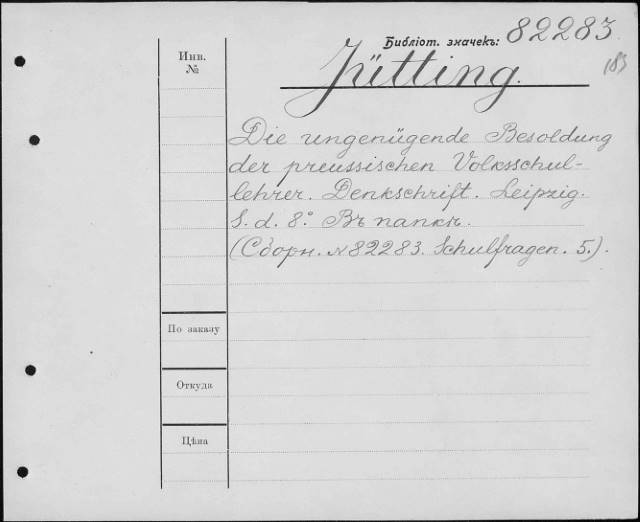 Библіот. значекъ: 82283
183
Инв.
№
Jütting.
Die ungenügende Besoldung
der preussischen Volksschul-
lehrer. Denkschrift. Leipzig.
S. d. 8.° Въ папкѣ.
(Сборн. №82283. Schulfragen. 5.).
По заказу
Откуда
Цѣна